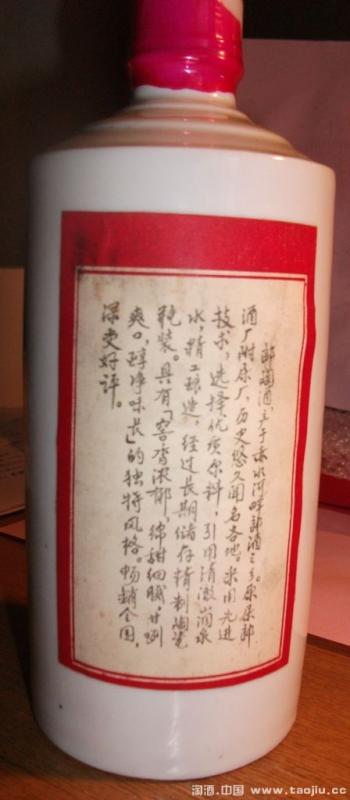 郎陶酒,产于赤水河畔郎酒之乡。原系郎
酒厂附属厂,历史悠久闻名各地。采用先进
技术,选择优质原料,引用清澈山涧泉
水,精工酿造,经过长期储存精制陶瓷
瓶装。具有「窖香浓郁,绵甜细腻,甘咧
爽口,醇净味长」的独特风格。畅销全国,
深受好评。
淘酒.中国 www.taojiu.cc